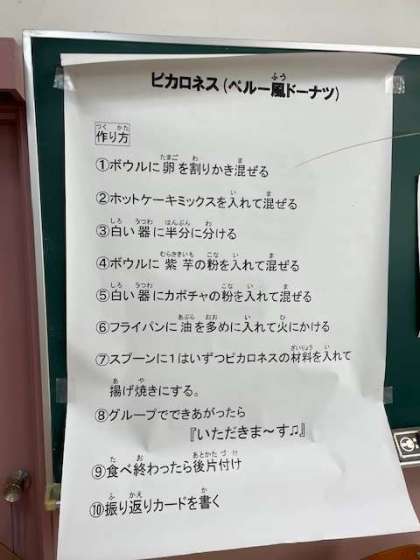 ピカロネス(ペルー風ドーナツ)
作り方
①ボウルに卵を割りかき混ぜる
②ホットケーキミックスを入れて混ぜる
③白い器に半分に分ける
④ボウルに紫芋の粉を入れて混ぜる
⑤白い器にカボチャの粉を入れて混ぜる
⑥フライパンに油を多めに入れて火にかける
⑦スプーンに1はいずつピカロネスの材料を入れて
揚げ焼きにする。
⑧グループでできあがったら
『いただきま~す♫』
⑨食べ終わったら後片付け
⑩振り返りカードを書く